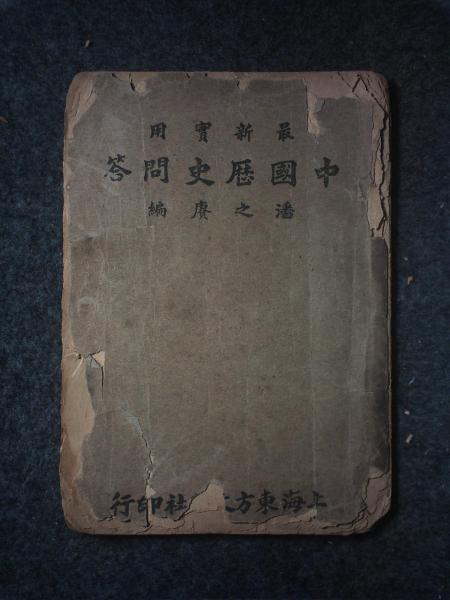 最新實用
中國歷史問答
潘之賡編
上海東方文 社印行